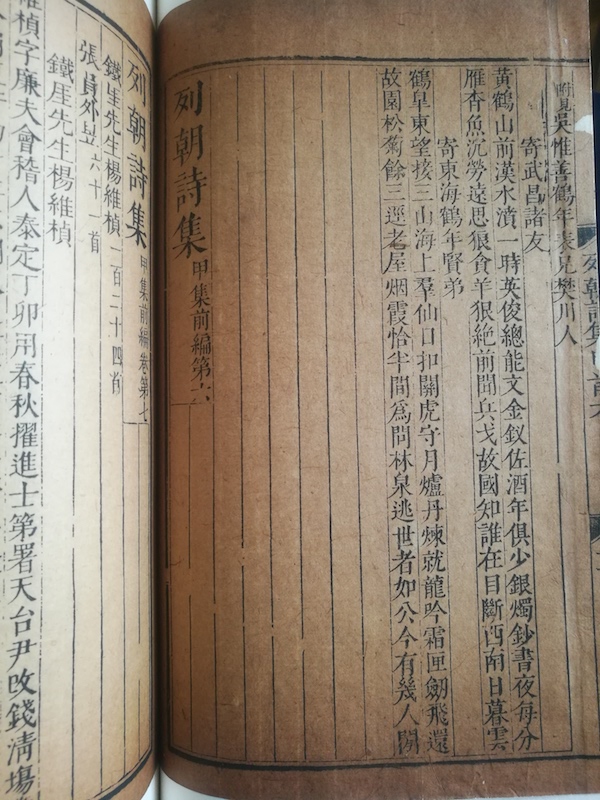 附見吳惟善鶴年表兄樊川人
寄武昌諸友
黃鶴山前漢水濆一時英俊總能文金釵佐酒年俱少銀燭鈔書夜每分
雁杳魚沉勞遠思狼貪羊狠絕前聞兵戈故國知誰在目斷西南日暮雲
寄東海鶴年賢弟
鶴臯東望接三山海上羣仙日扣關虎守月爐丹煉就龍吟霜匣劒飛還
故園松菊餘三逕老屋烟霞恰半間爲問林泉逃世者如公今有幾人閒
列朝詩集甲集前編第六
列朝詩集甲集前編卷第七
鐵厓先生楊維楨一百二十四首
張員外昱六十一首
鐵厓先生楊維楨
維楨字廉夫會稽人泰定丁卯用春秋擢進士第署天台尹改錢清場